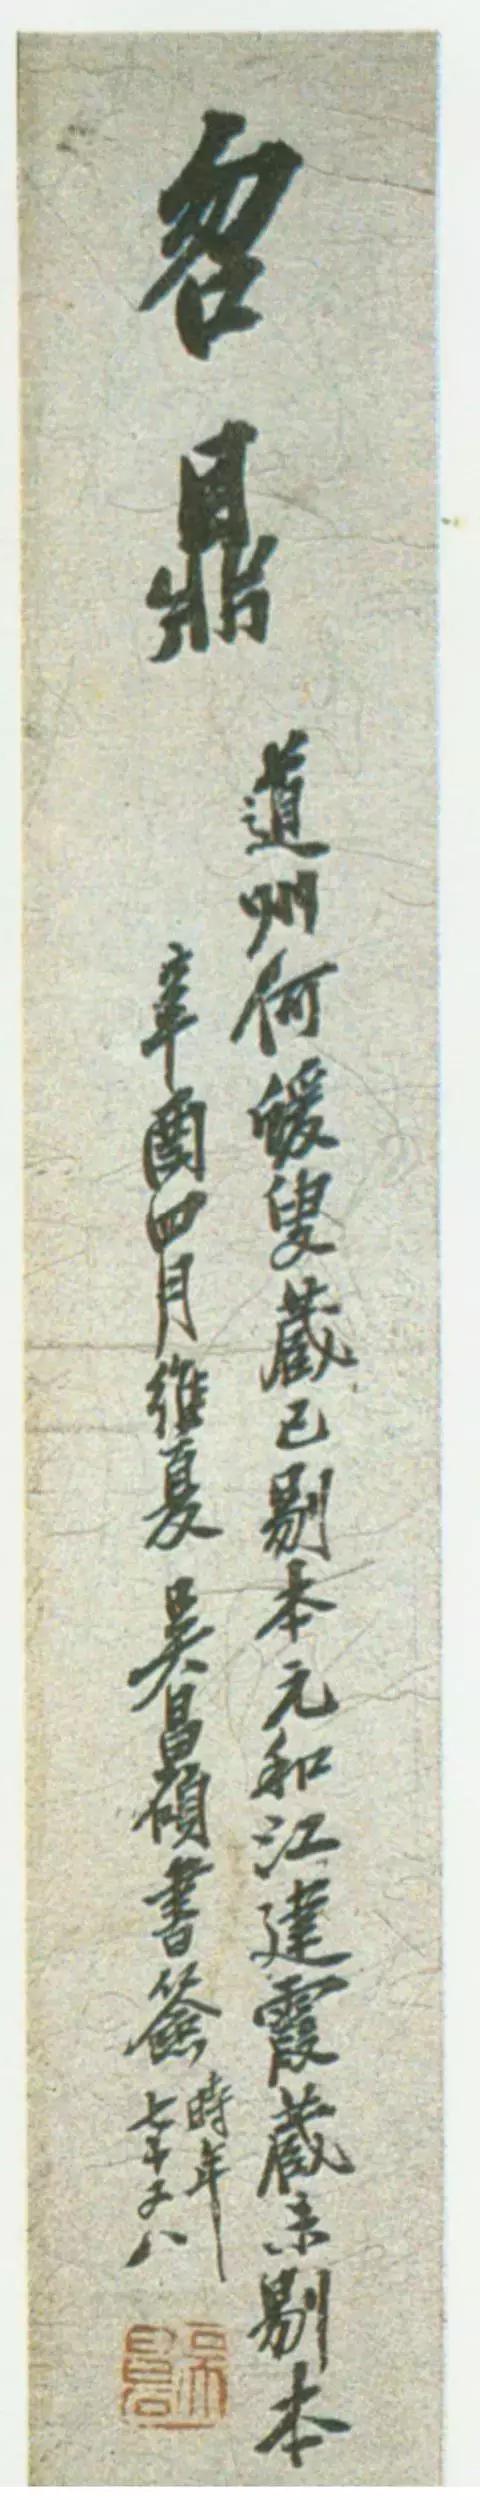 曶鼎
道州何蝯叟藏已剔本元和江建霞藏未剔本
辛酉四月維夏吳昌碩書簽
時年
七十又八
吳昌